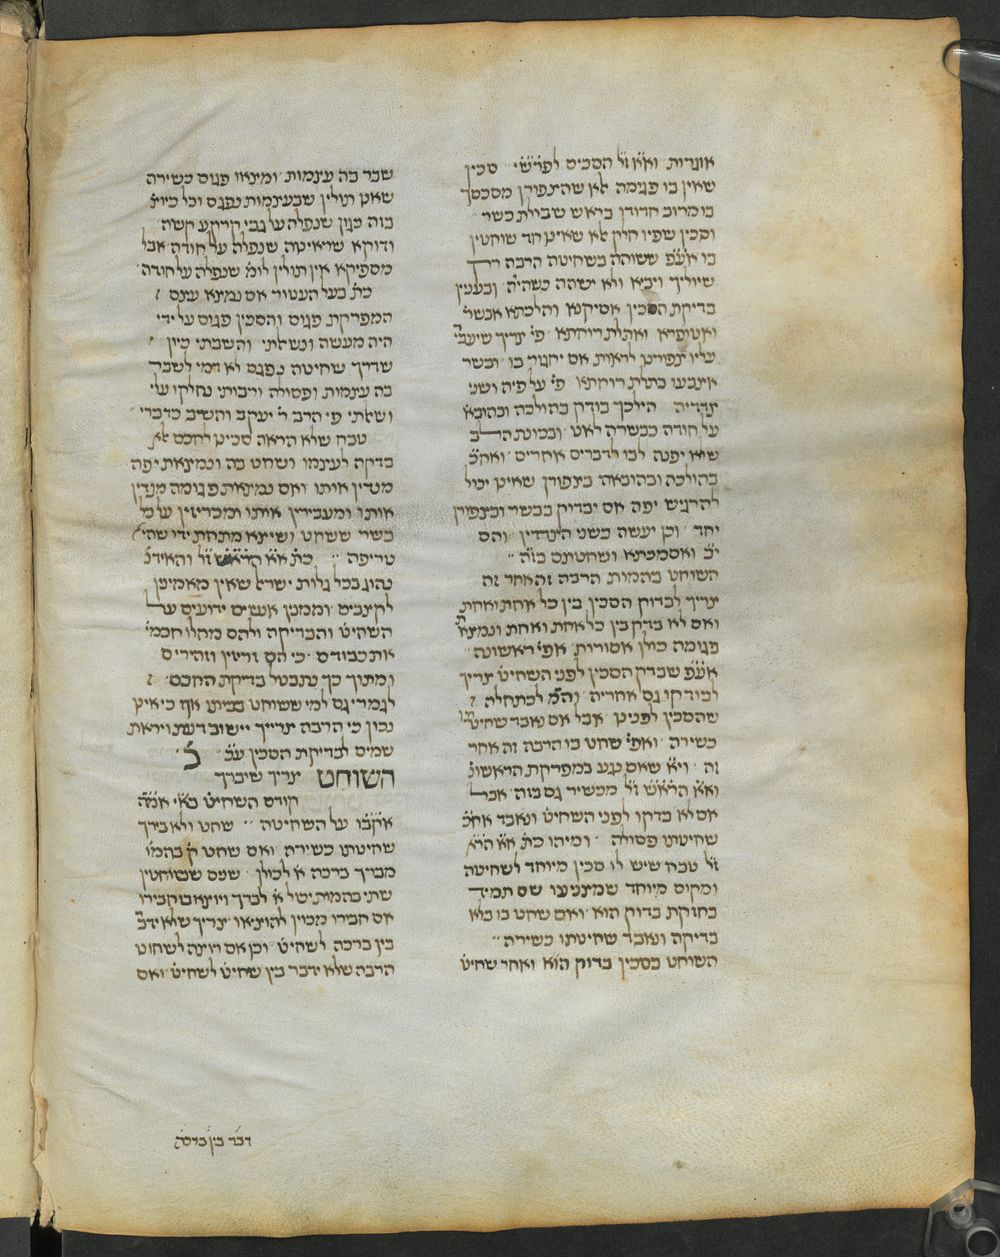 אוגרות וא״א ז״ל הסכים לפרש״י סכין
שאין בו פגימה אלא שהצפורן מסכסך
בו מרוב חדודו בראש שבולת כשר
וסכין שפיו חלק אלא שאינו חד שוחטין
בו אע״פ ששוהה בשחיטה הרבה רק
שיוליך ויביא ולא ישהה כשהיה ובענין
בדיקת הסכין אסיקנא והלכתא אבשרא
ואטופרא ואתלת רוחתא פי׳ צריך שיעביר
עליו צפורנו לראות אם יחגור בו ובשר
אצבעו בתלת רוחתא פי׳ על פיה ושני
צדדיה הילכך בודק בהולכה ובהובאה
על חודה בבשרה לאט ובכונת הלב
שלא יפנה לבו לדברים אחרים ואח״כ
בהולכה ובהובאה בצפורן שאינו יכול
להרגיש יפה אם יבדוק בבשר ובצפורן
יחד וכן יעשה בשני הצדדין והם
י״ב ואסמכתא ושחטתם בז״ה
השוחט בהמות הרבה זה אחר זה
צריך לבדוק הסכין בין כל אחת ואחת
ואם לא בדק בין כל אחת ואחת ונמצאת
פגומה כולן אסורות אפי׳ ראשונה
אע״פ שבדק הסכין לפני השחיט׳ צריך
לבודקו גם אחריה וה״מ לכתחלה
שהסכין לפנינו אבל אם נאבד שחיטתו
כשירה ואפי׳ שחט בו הרבה זה אחר
זה וי״א שאם נגע במפרקת הראשונ׳
וא״א הרא״ש ז״ל מכשיר גם בזה אבל
אם לא בדקו לפני השחיט׳ ונאבד אח״כ
שחיטתו פסולה ומיהו כת׳ א״א הרא״ש
ז״ל טבח שיש לו סכין מיוחד לשחיטה
ומקום מיוחד שמצניעו שם תמיד
בחזקת בדוק הוא ואם שחט בו בלא
בדיקה ונאבד שחיטתו כשירה
השוחט בסכין בדוק הוא ואחר שחיט׳
שבר בה עצמות ומצאו פגום כשירה
שאנו תולין שבעצמות נפגם וכל כיוצ׳
בזה כגון שנפלה על גבי קרקע קשה
ודוקא שראיטה שנפלה על חודה אבל
מספיקא אין תולין לומ׳ שנפלה על חודה
כת׳ בעל העטור אם נמצא עצם
המפרקת פגום והסכין פגום על ידי
היה מעשה ונשאלתי והשבתי כיון
שדרך שחיטה נפגם לא דמי לשבר
בה עצמות ופסולה ורבותי נחלקו עלי
ושאלתי פי׳ הרב ר׳ יעקב והשיב כדברי
טבח שלא הראה סכינו לחכם אלא
בדקה לעצמו ושחט בה ונמצאת יפה
מנדין אותו ואם נמצאת פגומה מנדין
אותו ומעבירין אותו ומכריזין על כל
בשר ששחט ושיצא מתחת ידו שהיא
טריפה כת׳ א״א הרא״ש ז״ל והאידנ׳
נהוג בכל גלות ישראל שאין מאמינן
לקצבים וממנין אנשים ידועים על
השחיט׳ והבדיקה ולהם מחלו חכמי׳
את כבודם כי הם זריזין וזהירים
ומתוך כך נתבטל בדיקת החכם
לגמרי גם למי ששוחט בביתו אף כי אינו
נכון כי הרבה צריך יישוב דעת ויראת
שמים לבדיקת הסכין ע״כ
השוחט צריך שיברך
קודם השחיט׳ בא״י אמ״ה
אקב״ו על השחיטה שחט ולא בירך
שחיטתו כשירה ואם שחט ק׳ בהמו׳
מברך ברכה א׳ לכולן שנים ששוחטין
שתי בהמות יכול א׳ לברך ויוצא בו חבירו
אם חבירו מכוין להוציאו וצריך שלא ידבר
בין ברכה לשחיט׳ וכן אם רוצה לשחוט
הרבה שלא ידבר בין שחיט׳ לשחיט׳ ואם
דבר בין ברכה